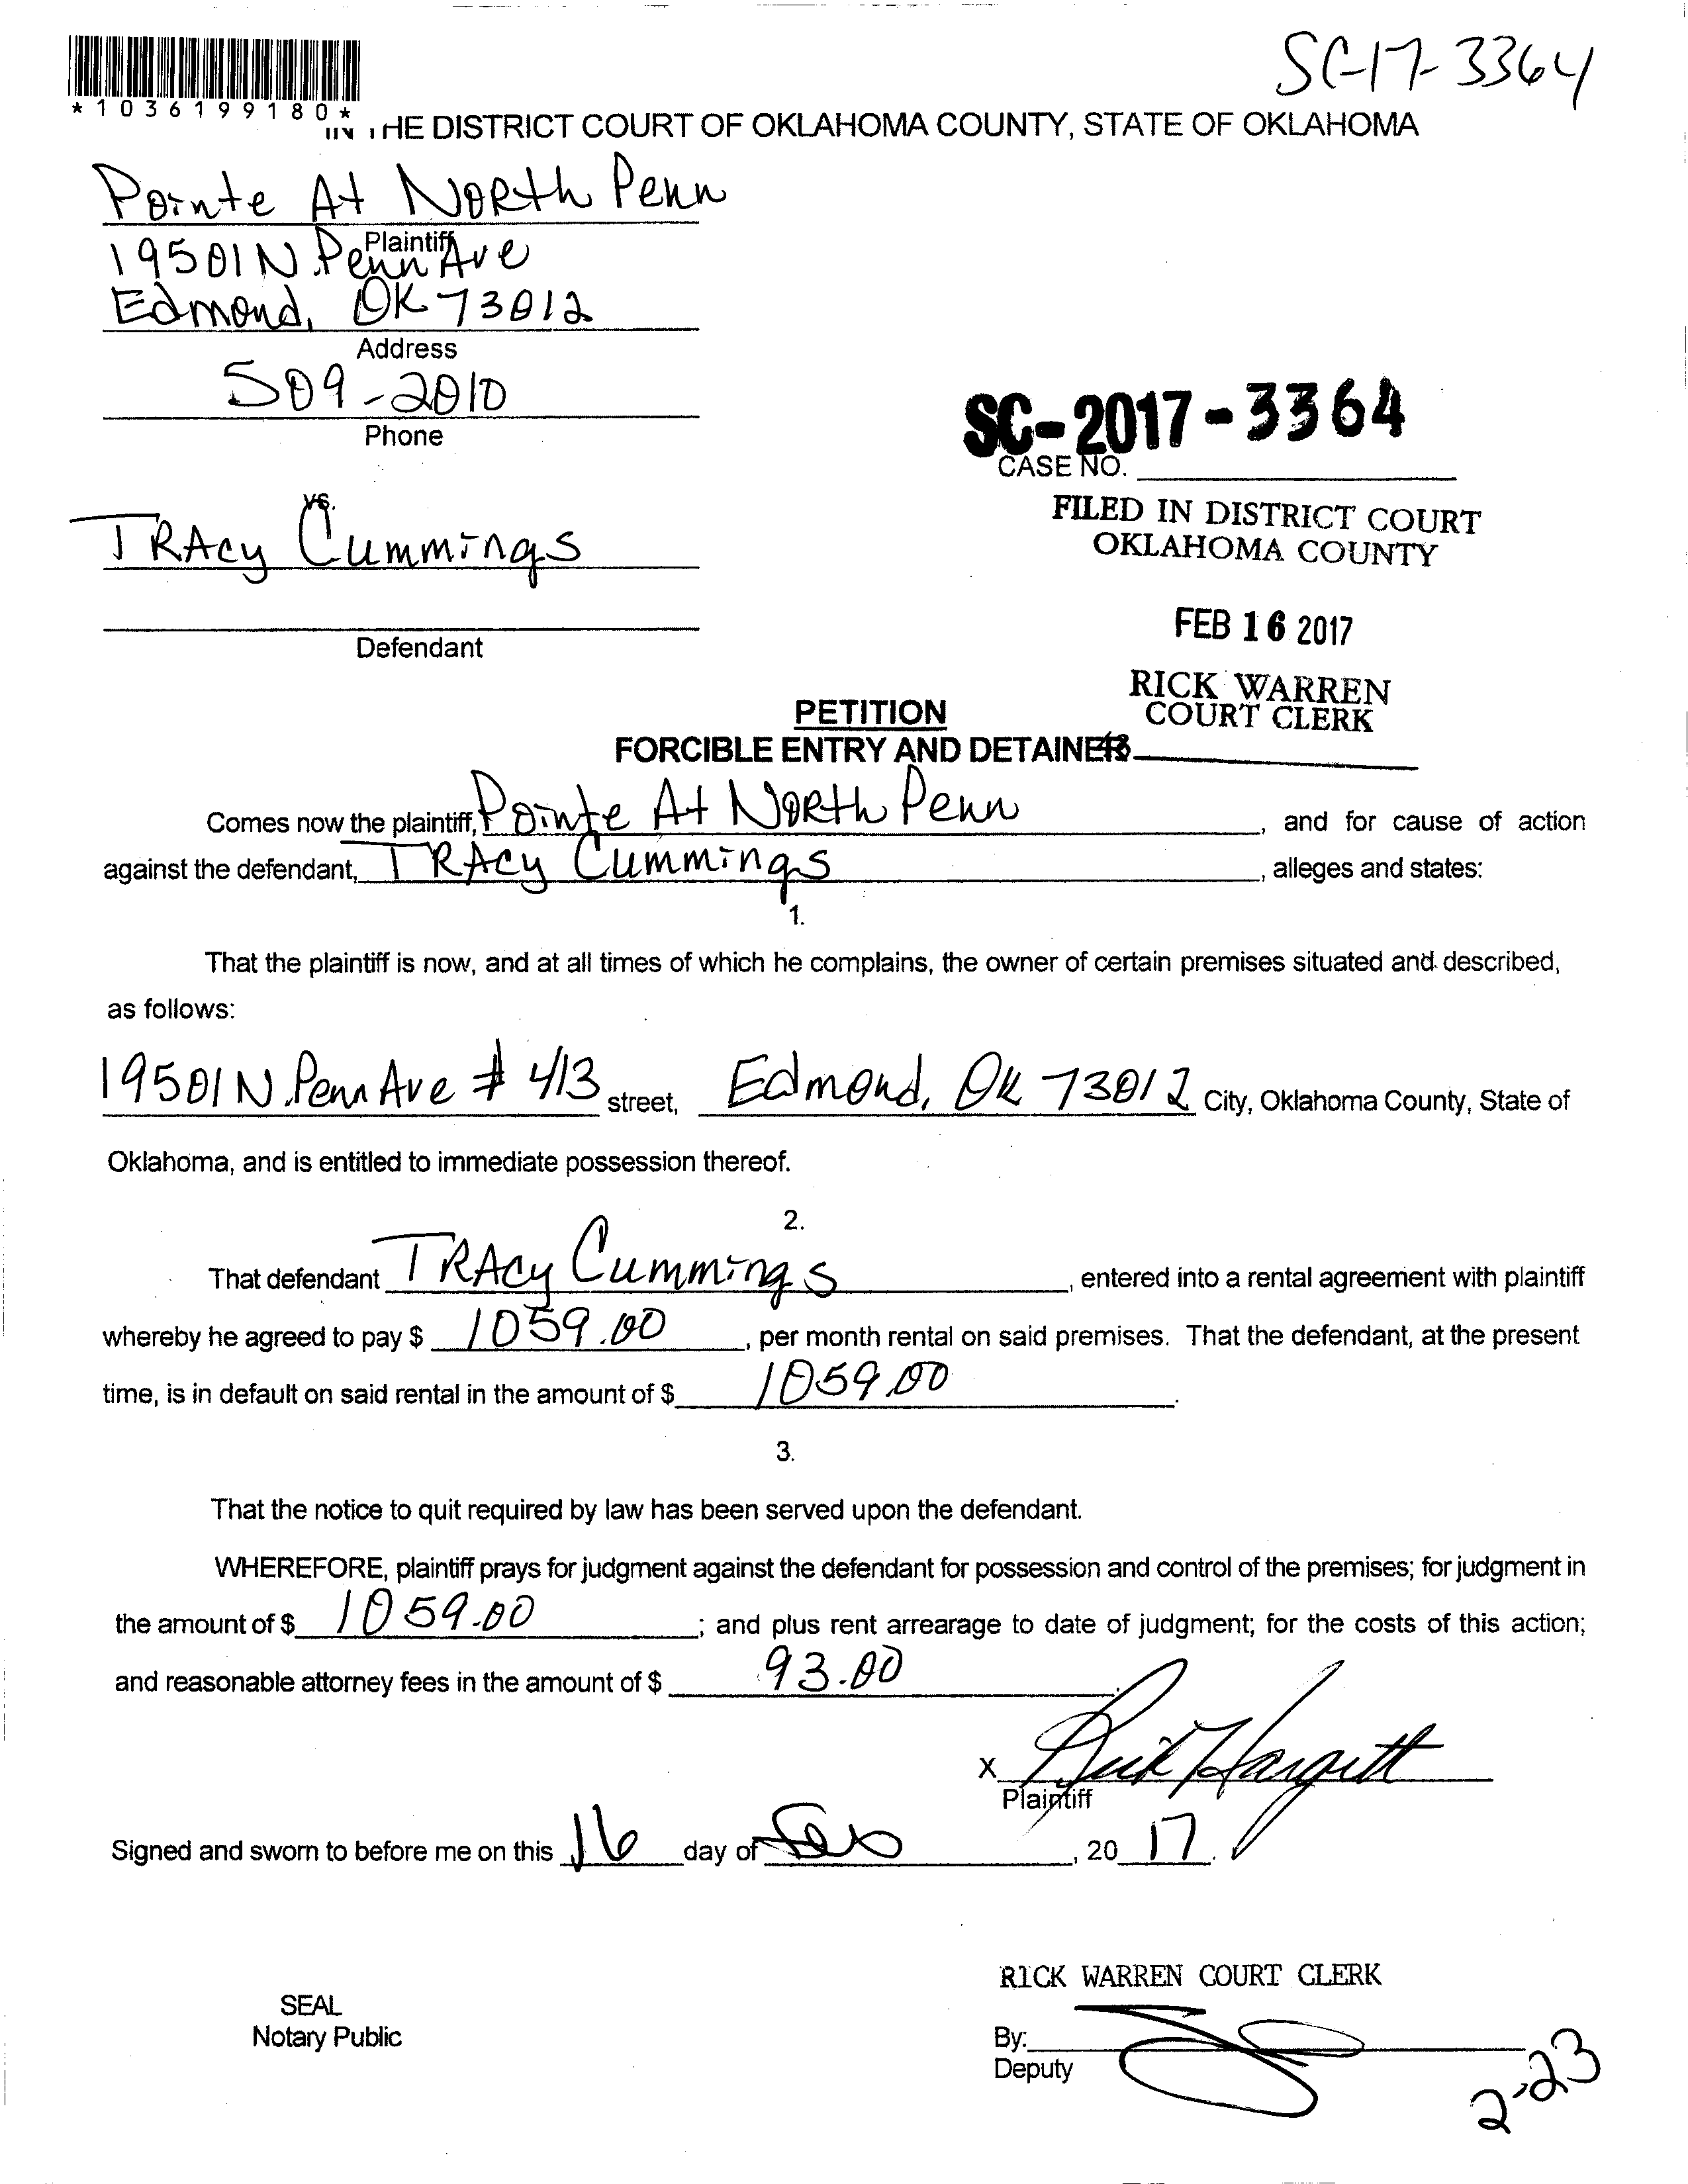 SC-17-3364
*1036199180*
IN THE DISTRICT COURT OF OKLAHOMA COUNTY, STATE OF OKLAHOMA
Pointe At North Penn
Plaintiff
19501 N. Penn Ave
Edmond, OK 73012
Address
509-2010
Phone
SC-2017-3364
CASE NO.
FILED IN DISTRICT COURT
OKLAHOMA COUNTY
vs.
TRAcy Cummings
Defendant
FEB 16 2017
RICK WARREN
COURT CLERK
PETITION
FORCIBLE ENTRY AND DETAINER
Comes now the plaintiff, Pointe At North Penn, and for cause of action
against the defendant, TRAcy Cummings, alleges and states:
1.
That the plaintiff is now, and at all times of which he complains, the owner of certain premises situated and described,
as follows:
19501 N. Penn Ave # 413 street, Edmond, OK 73012 City, Oklahoma County, State of
Oklahoma, and is entitled to immediate possession thereof.
2.
That defendant TRAcy Cummings, entered into a rental agreement with plaintiff
whereby he agreed to pay $ 1059.00, per month rental on said premises. That the defendant, at the present
time, is in default on said rental in the amount of $ 1059.00.
3.
That the notice to quit required by law has been served upon the defendant.
WHEREFORE, plaintiff prays for judgment against the defendant for possession and control of the premises; for judgment in
the amount of $ 1059.00; and plus rent arrearage to date of judgment; for the costs of this action;
and reasonable attorney fees in the amount of $ 93.00.
x Rick Hargett
Plaintiff
Signed and sworn to before me on this 16 day of Feb, 20 17.
RICK WARREN COURT CLERK
SEAL
Notary Public
By:
Deputy
2-23